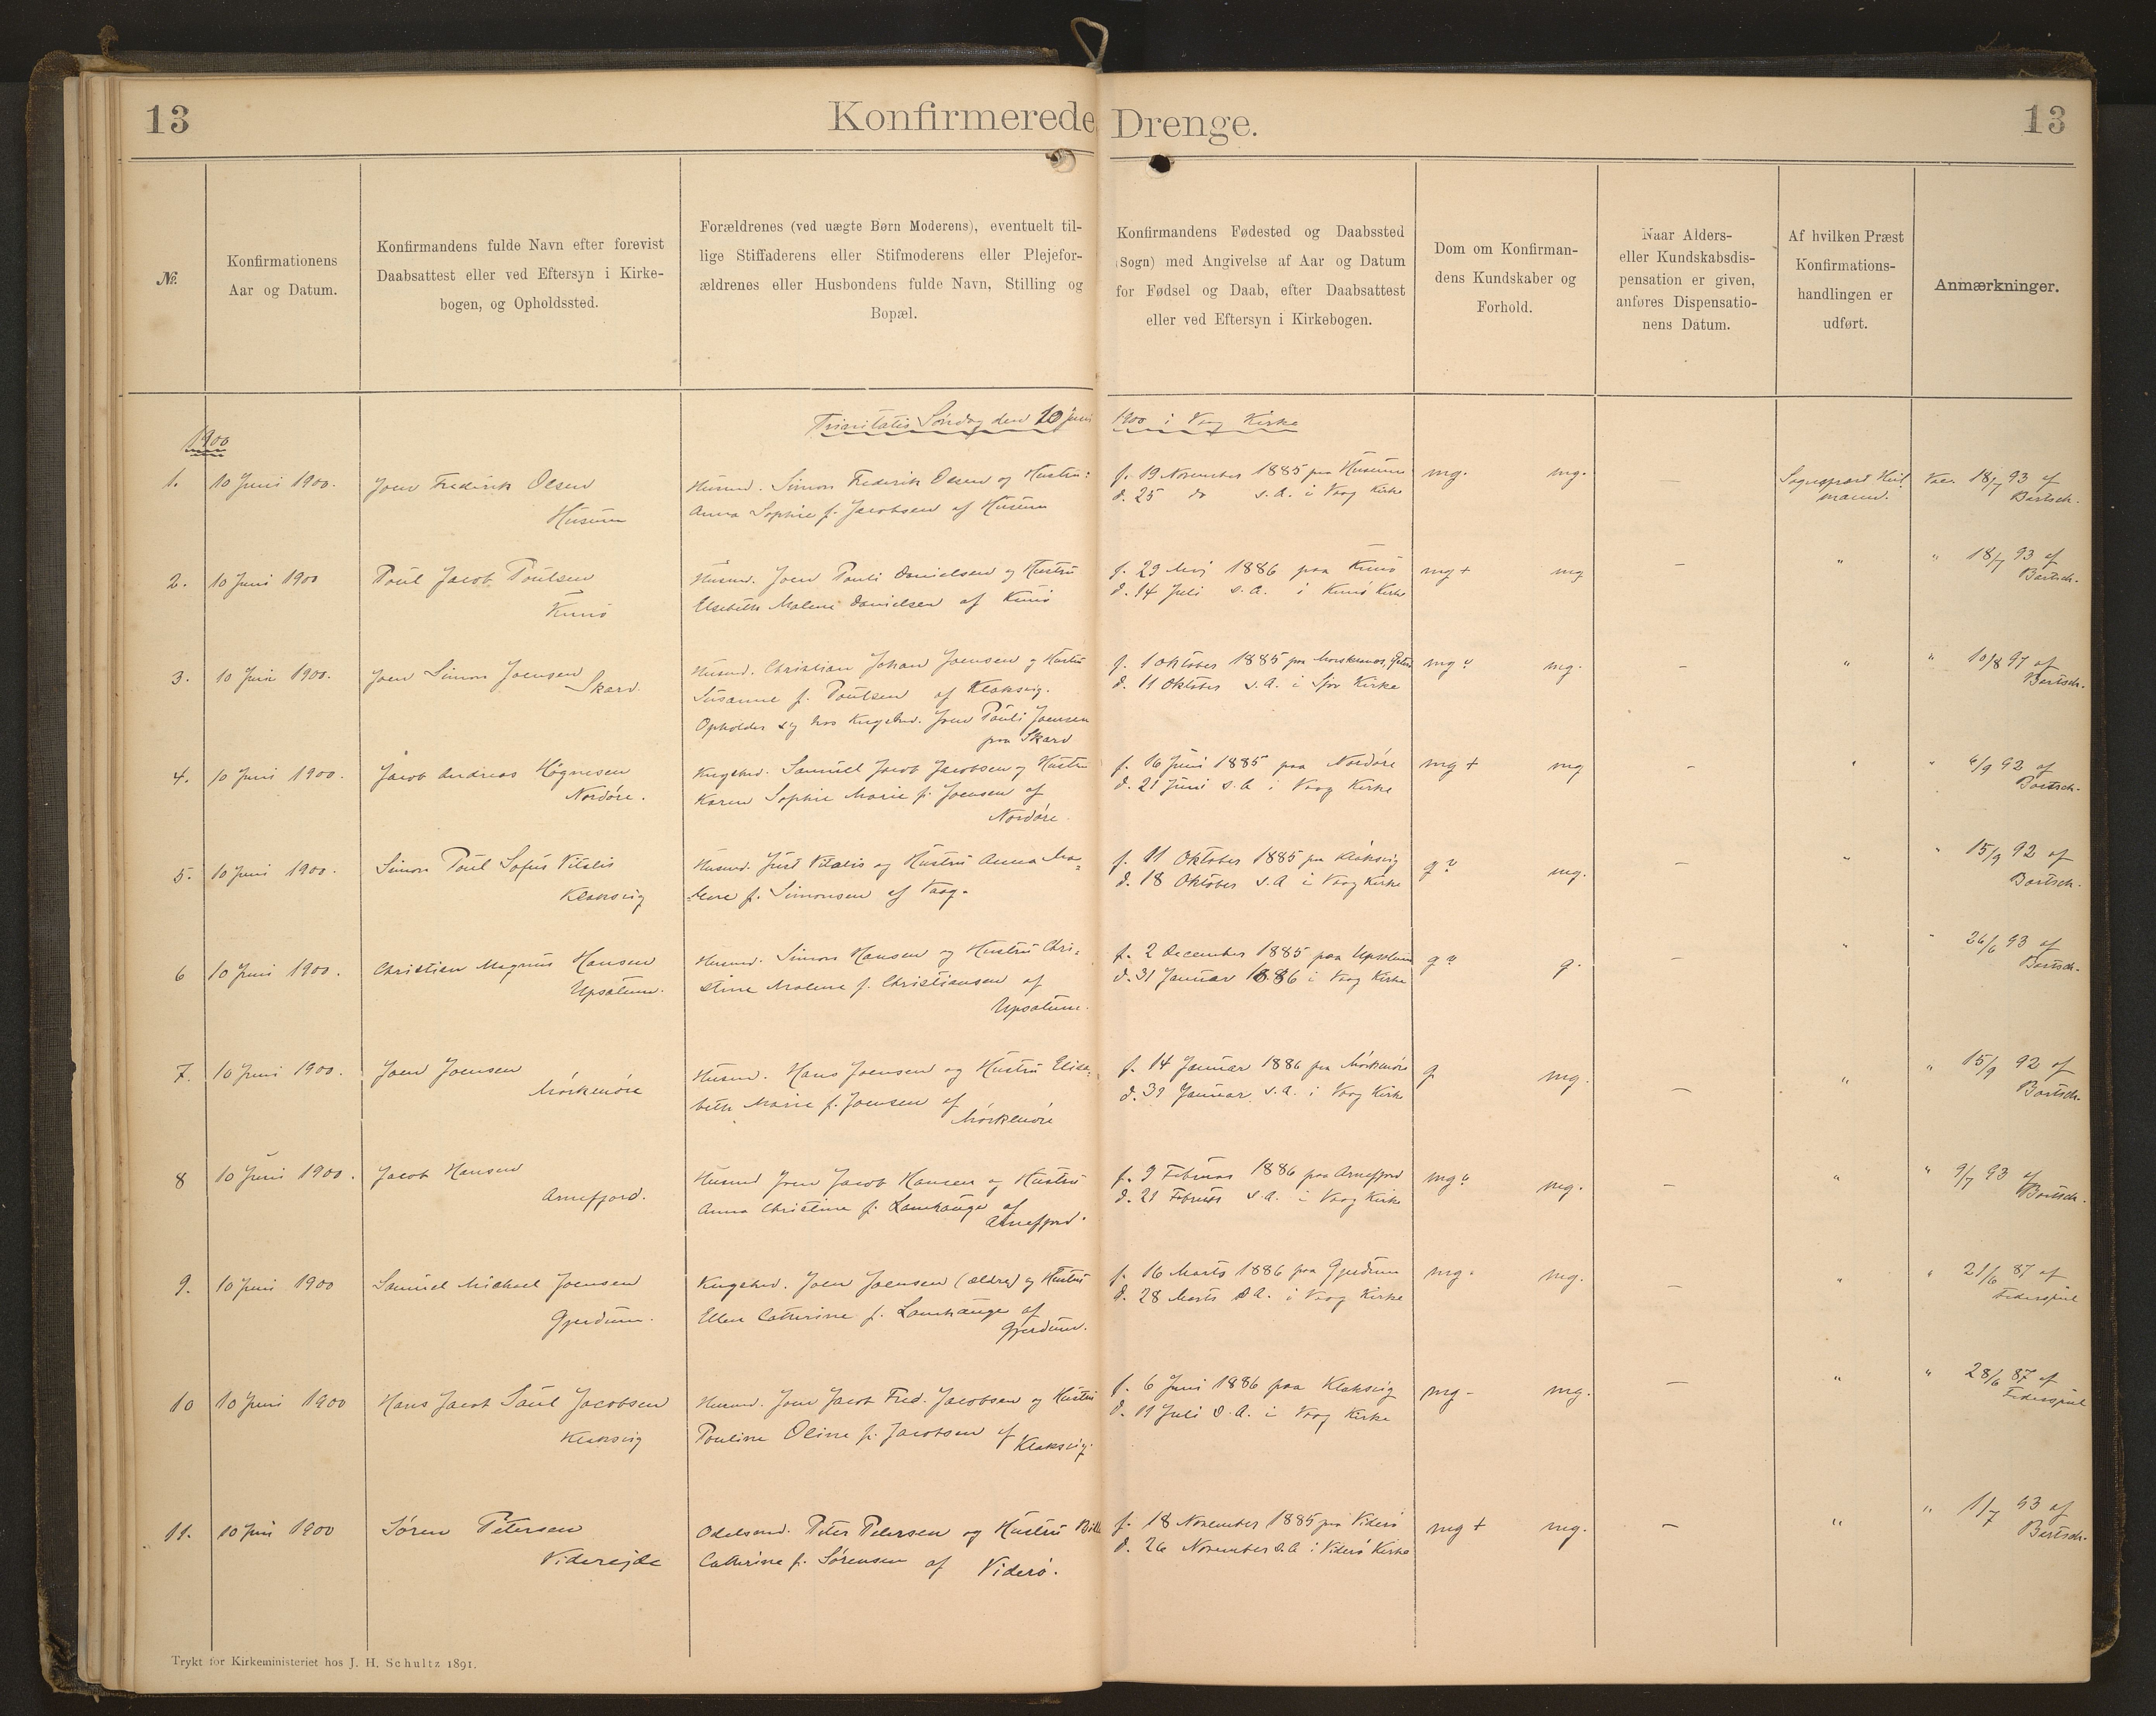 13
Konfirmerede Drenge.
13
№.
Konfirmationens
Aar og Datum.
Konfirmandens fulde Navn efter forevist
Daabsattest eller ved Eftersyn i Kirke-
bogen, og Opholdssted.
Forældrenes (ved uægte Børn Moderens), eventuelt til-
lige Stiffaderens eller Stifmoderens eller Plejefor-
ældrenes eller Husbondens fulde Navn, Stilling og
Bopæl.
Konfirmandens Fødested og Daabssted
(Sogn) med Angivelse af Aar og Datum
for Fødsel og Daab, efter Daabsattest
eller ved Eftersyn i Kirkebogen.
Dom om Konfirman-
dens Kundskaber og
Forhold.
Naar Alders-
eller Kundskabsdis-
pensation er given,
anføres Dispensatio-
nens Datum.
Af hvilken Præst
Konfirmations-
handlingen er
udført.
Anmærkninger.
Trinitatis Søndag den 10 Juni 1900 i Vaag Kirke
1900
1.
10 Juni 1900.
Joen Frederik Olsen
Husum
Husmd. Simon Frederik Olsen og Hustru
Anna Sophie f. Jacobsen af Husum
f. 19 November 1885 paa Husum
d. 25 do s.A. i Vaag Kirke
mg. mg.
—
Sognepræst Heil-
mann.
Vac. 18/7 93 af
Bartsch.
2.
10 Juni 1900
Poul Jacob Poulsen
Kunø
Husmd. Joen Pauli Danielsen og Hustru
Elsebeth Malene Danielsen af Kunø
f. 29 Maj 1886 paa Kunø
d. 14 Juli s.A. i Kunø Kirke
mg + mg
—
"
" 18/7 93 af
Bartsch.
3.
10 Juni 1900.
Joen Simon Joensen
Skard.
Husmd. Christian Johan Joensen og Hustru
Susanne f. Poulsen af Klaksvig.
Opholder sig hos Kngsbd. Joen Pauli Joensen
paa Skard
f. 1 Oktober 1885 paa
d. 11 Oktober s.A. i Kirke
mg " mg.
—
"
" 10/8 97 af
Bartsch.
4.
10 Juni 1900.
Jacob Andreas Høgnesen
Nordøre.
Kngsbd. Samuel Jacob Jacobsen og Hustru
Karen Sophie Marie f. Joensen af
Nordøre.
f. 16 Juni 1885 paa Nordøre
d. 21 Juni s.A i Vaag Kirke
mg + mg
—
"
" 6/9 92 af
Bartsch.
5.
10 Juni 1900.
Simon Poul Sofus Vitalis
Klaksvig
Husmd. Just Vitalis og Hustru Anna Ma-
lene f. Simonsen af Vaag.
f. 11 Oktober 1885 paa Klaksvig
d. 18 Oktober s.A i Vaag Kirke
g " mg.
—
"
" 15/9 92 af
Bartsch.
6
10 Juni 1900.
Christian Magnus Hansen
Upsalum.
Husmd. Simon Hansen og Hustru Chri-
stine Malene f. Christiansen af
Upsalum.
f. 2 December 1885 paa Upsalum
d. 31 Januar 1886 i Vaag Kirke
g " g.
—
"
" 26/6 93 af
Bartsch.
7.
10 Juni 1900.
Joen Joensen
Mörkenöre
Husmd. Hans Joensen og Hustru Elisa-
beth Marie f. Joensen af
Mörkenöre
f. 14 Januar 1886 paa Mörkenöre
d. 31 Januar s.A. i Vaag Kirke
g mg.
—
"
" 15/9 92 af
Bartsch.
8
10 Juni 1900.
Jacob Hansen
Arnefjord.
Husmd Joen Jacob Hansen og Hustru
Anna Christine f. Lamhauge af
Arnefjord.
f. 9 Februar 1886 paa Arnefjord
d. 21 Februar s.A. i Vaag Kirke
mg " mg.
—
"
" 9/7 93 af
Bartsch.
9.
10 Juni 1900
Samuel Michael Joensen
Gjerdum.
Kngsbd. Joen Joensen (ældre) og Hustru
Ellen Cathrine f. Lamhauge af
Gjerdum.
f. 16 Marts 1886 paa Gjerdum
d. 28 Marts s.A. i Vaag Kirke
mg. mg.
—
"
" 21/6 87 af
Federspiel
10
10 Juni 1900
Hans Jacob Saul Jacobsen
Klaksvig
Husmd. Joen Jacob Fred. Jacobsen og Hustru
Pouline Oline f. Jacobsen af Klaksvig.
f. 6 Juni 1886 paa Klaksvig
d. 11 Juli s.A. i Vaag Kirke
mg - mg.
—
"
" 28/6 87 af
Federspiel
11.
10 Juni 1900
Sören Petersen
Viderejde
Odelsmd. Peter Petersen og Hustru
Cathrine f. Sörensen af Viderö.
f. 18 November 1885 paa Viderö
d. 26 November s.A i Viderö Kirke
mg + mg.
—
"
" 1/7 93 af
Bartsch.
Trykt for Kirkeministeriet hos J. H. Schultz 1891.